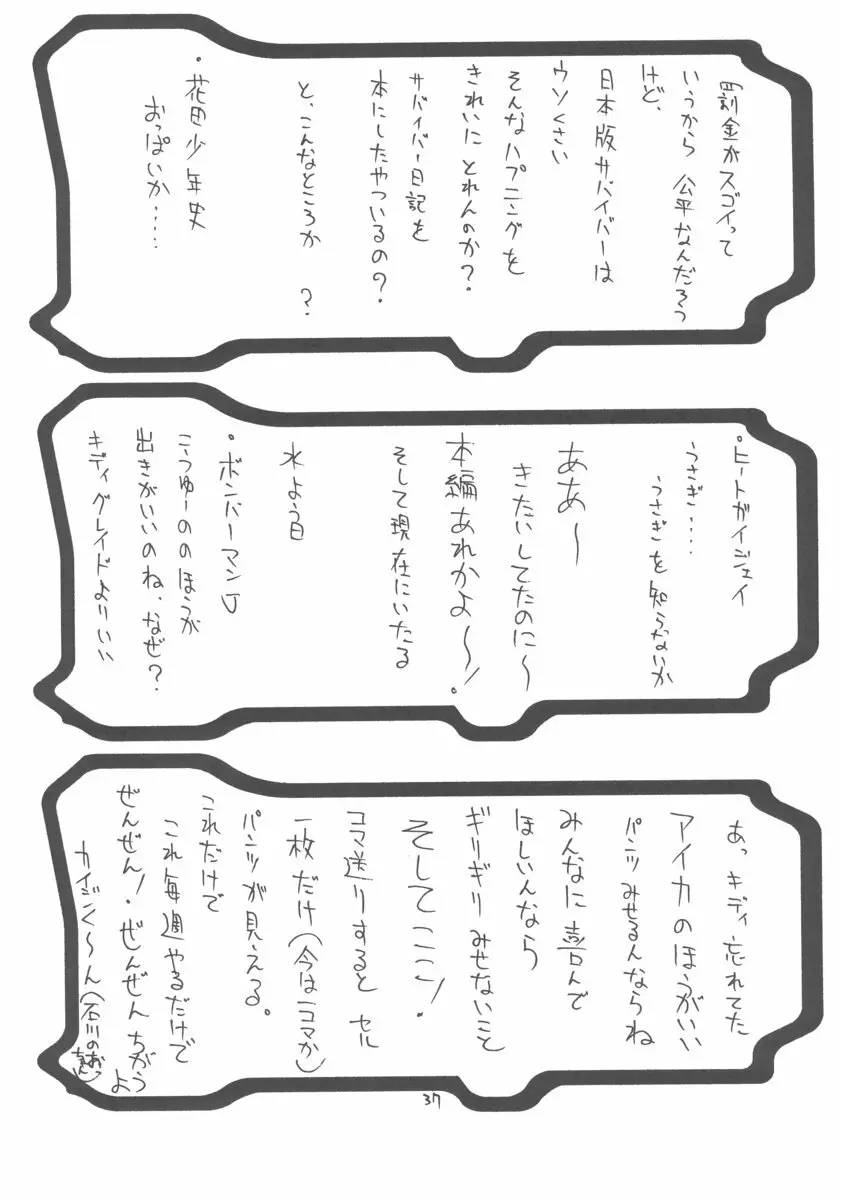 罰金がスゴイって
いうから 公平なんだろう
けど、
日本版サバイバーは
ウソくさい
そんなハプニングを
きれいに とれんのか?
サバイバー日記を
本にしたやついるの?
と、こんなところか ?
・花田少年史
おっぱいか……
・ヒートガイジェイ
うさぎ…
うさぎを知らないか
ああ〜
きたいしてたのに〜
本編あれかよ〜!
そして現在にいたる
水よう日
・ボンバーマンJ
こうゆーののほうが
出きがいいのね、なぜ?
キディグレイドよりいい
あっ キディ忘れてた
アイカのほうがいい
パンツみせるんならね
みんなに喜んで
ほしいんなら
ギリギリ みせないこと
そしてここ!
コマ送りすると セル
一枚だけ(今は一コマか)
パンツが見える。
これだけで
これ毎週やるだけで
ぜんぜん!・ぜんぜん ちがうよ
カイジンく〜ん(石川のおっちゃん)
37